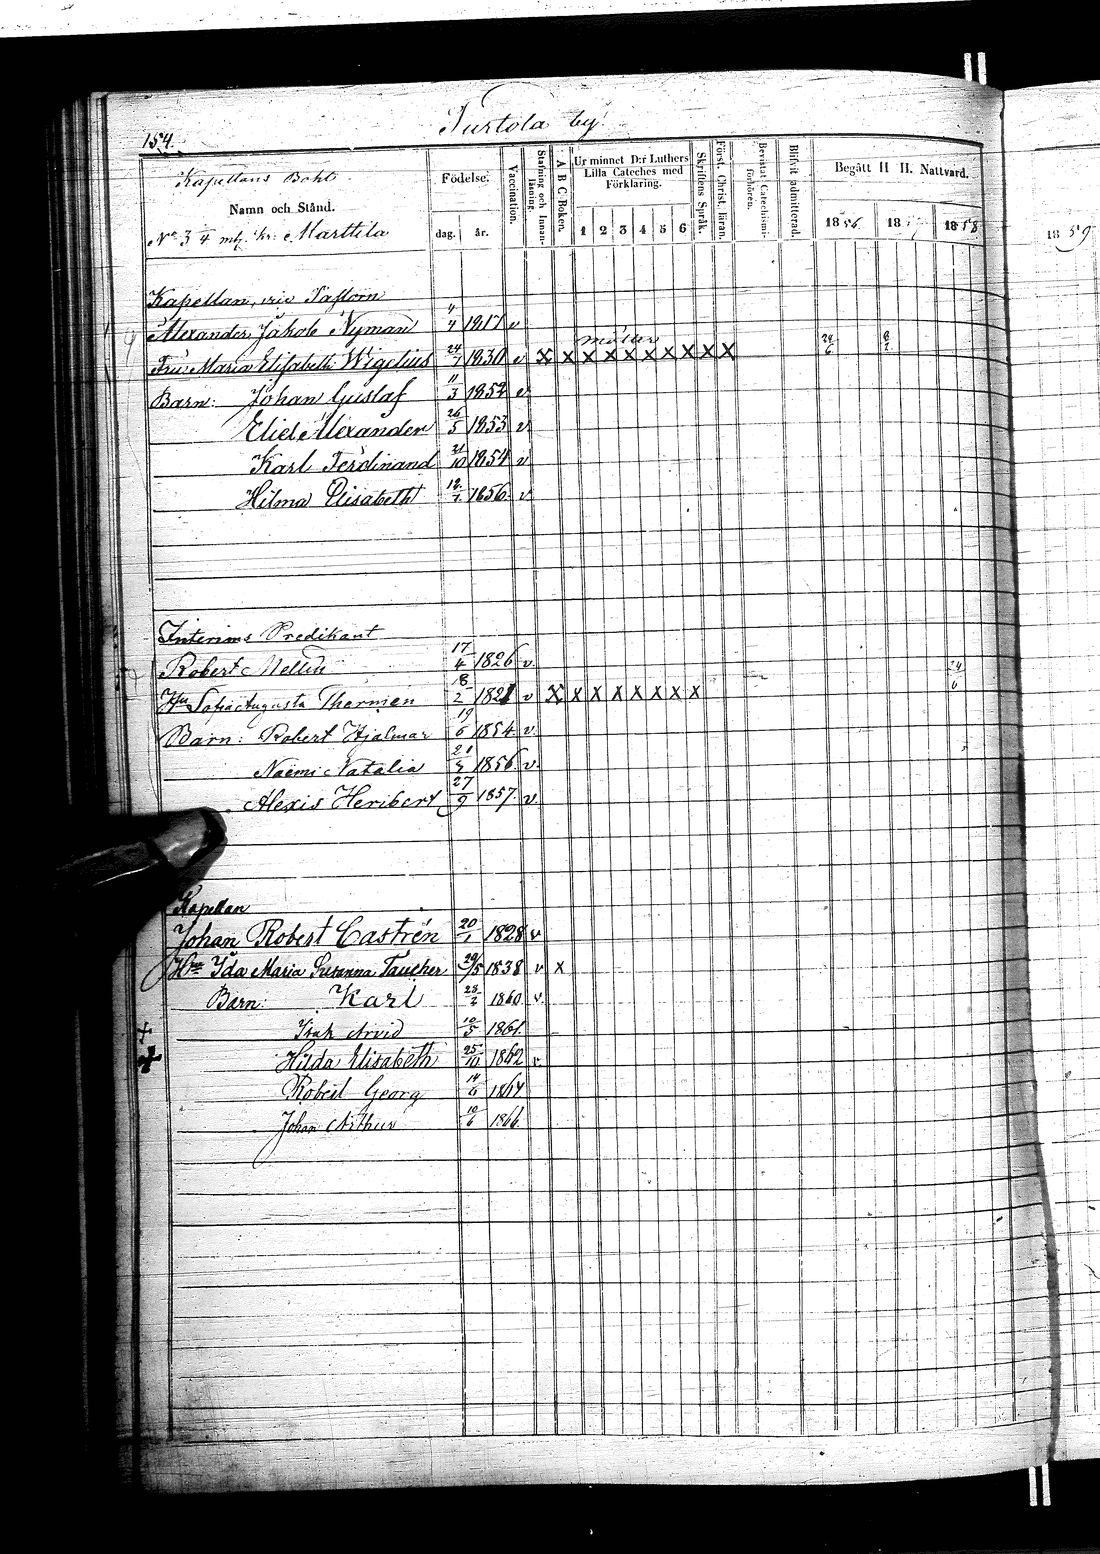 154.
Turtola by.
Kapellans Bohl
Namn och Stånd.
No 3 3/4 mtl. kr: Marttila
Födelse.
dag. år.
Vaccination.
Stafning och Innanläsning.
A B C-Boken.
Ur minnet D:r Luthers Lilla Cateches med Förklaring.
1 2 3 4 5 6
Skriftens Språk.
Först. Christ. läran.
Bevistat Catechismiförhören.
Blifvit admitterad.
Begått H. H. Nattvard.
1856. 18 1858
1859
Kapellan, vice Pastorn
Alexander Jakob Nyman 11/4 1817 v
Fru Maria Elisabeth Wigelius 24/7 1830 v X X X X X X X X X X 24/6
Barn: Johan Gustaf 11/3 1852 v
Eliel Alexander 26/5 1853 v
Karl Ferdinand 21/10 1854 v
Hilma Elisabeth 1856 v
Interims Predikant
Robert Mellin 17/4 1826 v. 24/6
Hu Sofia Augusta Thormen 18/2 1821 v X X X X X X X X
Barn: Robert Hjalmar 19/6 1854 v.
Naëmi Natalia 1856. v.
Alexis Heribert 27/9 1857. v.
Kapellan
Johan Robert Castrén 20/1 1828 v
Hu Ida Maria Susanna Taucher 29/5 1838 v X
Barn: Karl 28/2 1860. v.
+ Isak Arvid 10/5 1861.
+ Hilda Elisabeth 25/10 1862 v.
Robert Georg 14/6 1864
Johan Arthur 10/6 1866.